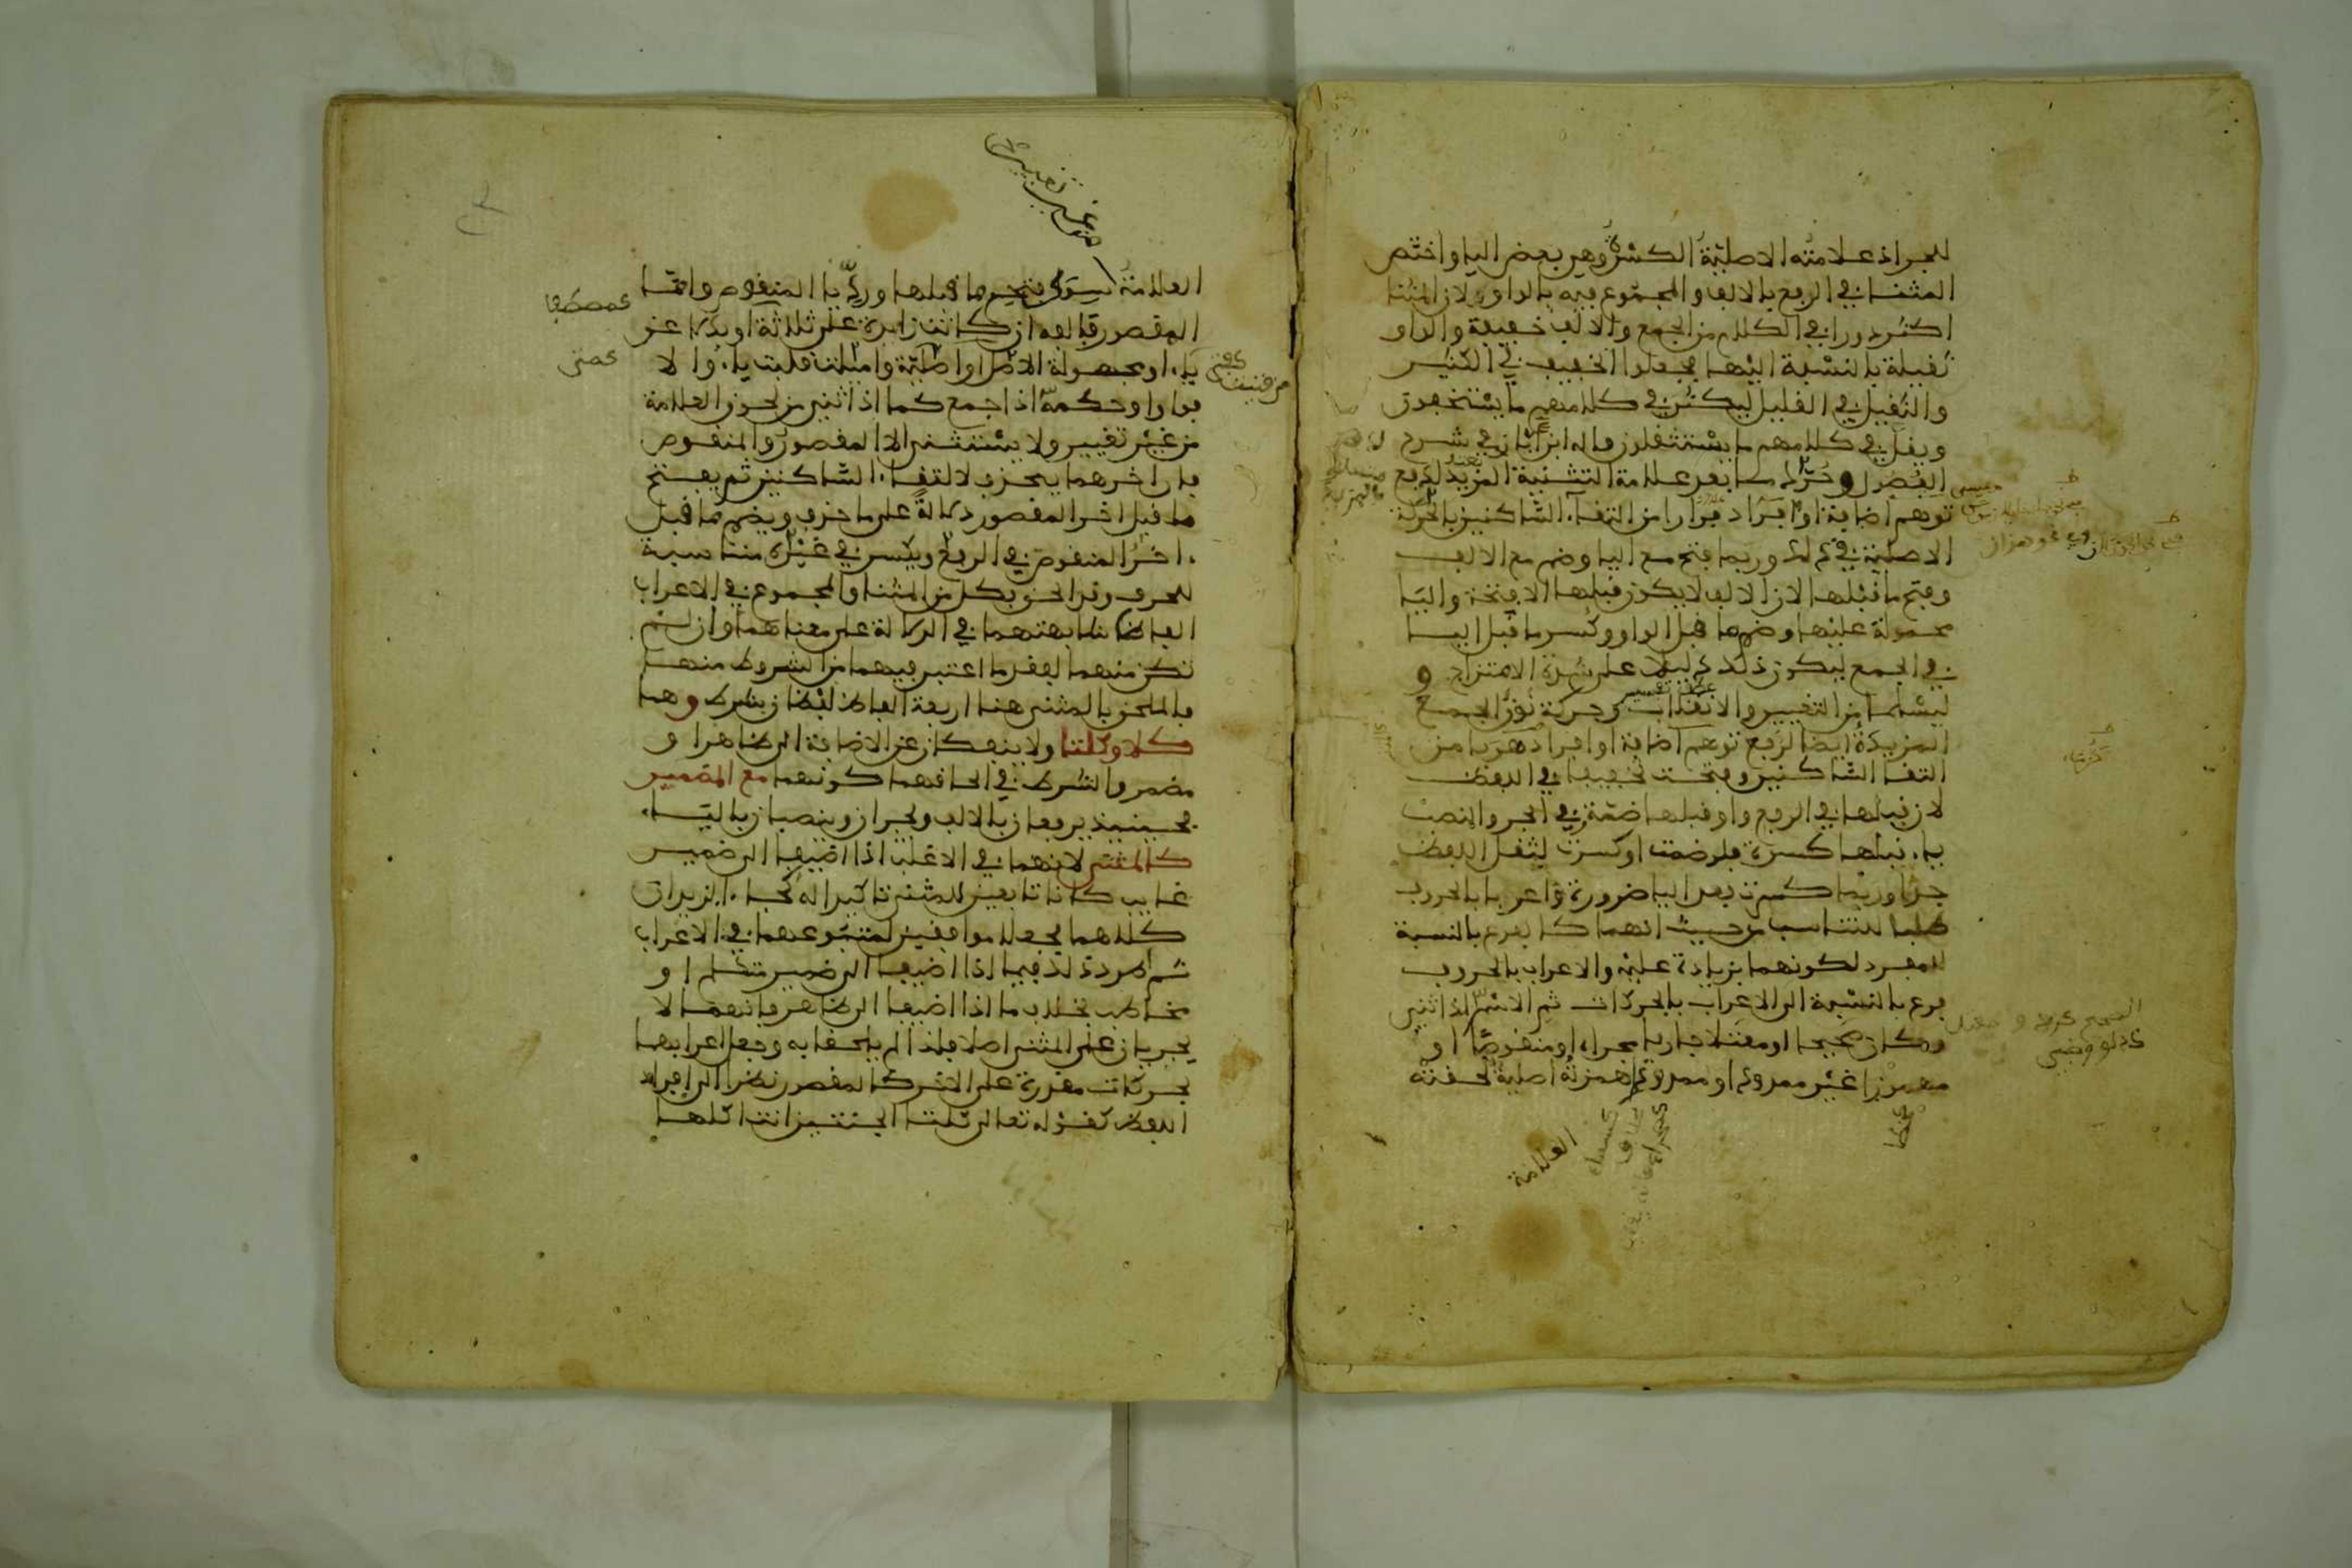 للجر اذ علامته الاصلية الكسرة وهي بعض اليا واختص
المثنا في الرفع بالالف والمجموع فيه بالواو لان المثنا
اكثر دورا في الكلام من الجمع والالف خفيفة والواو
ثقيلة بالنسبة اليها فجعلوا الخفيف في الكثير
والثقيل في القليل ليكثر في كلامهم ما يستخفون
ويقل في كلامهم ما يستثقلون قاله ابن اياز في شرح
الفصول وحرك ما بعد علامة التثنية المزيد لدفع
توهم اضافة او افراد فرارا من التقاء الساكنين بالحركة
الاصلية في ذلك وربما فتح مع اليا وضم مع الالف
وفتح ما قبلها لان الالف لا يكون قبلها الا فتحة واليا
محمولة عليها وضم ما قبل الواو وكسر ما قبل اليا
في الجمع ليكون ذلك دليلا على شدة الامتزاج و
ليسلما من التغيير والانقلاب وحركة نون الجمع
المزيدة ايضا لرفع توهم اضافة او افراد هربا من
التقا الساكنين وفتحت تخفيفا في اللفظ
لان قبلها في الرفع واو قبلها ضمة وفي الجر والنصب
ياء قبلها كسرة فلو ضمت او كسرت لثقل اللفظ
جدا وربما كسرت بعد اليا ضرورة واعربا بالحروف
طلبا للتناسب من حيث انهما كالفرع بالنسبة
للمفرد لكونهما بزيادة عليه والاعراب بالحروف
فرع بالنسبة الى الاعراب بالحركات ثم الاسم اذا ثني
وكان صحيحا او معتلا جاريا مجراه او منقوصا او
مهموزا غير ممدود او ممدودا همزته اصلية لحقته
العلامة
من غير تغيير
العلامة سوى فتح ما قبلها ورد يا المنقوص واما
المقصور فالفه ان كانت زايدة على ثلاثة او بدلا عن
ياء او مجهولة الاصل او اصلية واميلت قلبت ياء والا
فواوا وحكمه اذا جمع كما اذا ثني من لحوق العلامة
من غير تغيير ولا يستثنى الا المقصور والمنقوص
فان اخرهما يحذف لالتقاء الساكنين ثم يفتح
ما قبل اخر المقصور دلالة على ما حذف ويضم ما قبل
اخر المنقوص في الرفع ويكسر في غيره مناسبة
للحرف وقد الحق بكل من المثنا والمجموع في الاعراب
الفاظ شابهتهما في الدلالة على معناهما وان لم
تكن منهما لفقد ما اعتبر فيهما من الشروط منها
فالملحق بالمثنى هنا اربعة الفاظ لفظان بشرط وهما
كلا وكلتا ولا ينفكان عن الاضافة الى ظاهر او
مضمر والشرط في الحاقهما كونهما مع الضمير
فحينيذ يرفعان بالالف ويجران وينصبان باليا
كالمثنى لانهما في الاغلب اذا اضيفا الى ضمير
غايب كانا تابعين للمثنى تاكيدا له كجاء الزيدان
كلاهما فجعلا موافقين لمتبوعهما في الاعراب
ثم طرد ذلك فيما اذا اضيفا الى ضمير متكلم او
مخاطب بخلاف ما اذا اضيفا الى ظاهر فانهما لا
يجريان على المثنى اصلا فلذا لم يلحقا به وجعل اعرابهما
بحركات مقدرة على الاخر كالمقصور نظرا الى افراد
اللفظ كقوله تعالى كلتا الجنتين اتت اكلها
كمصطفى
كمتى